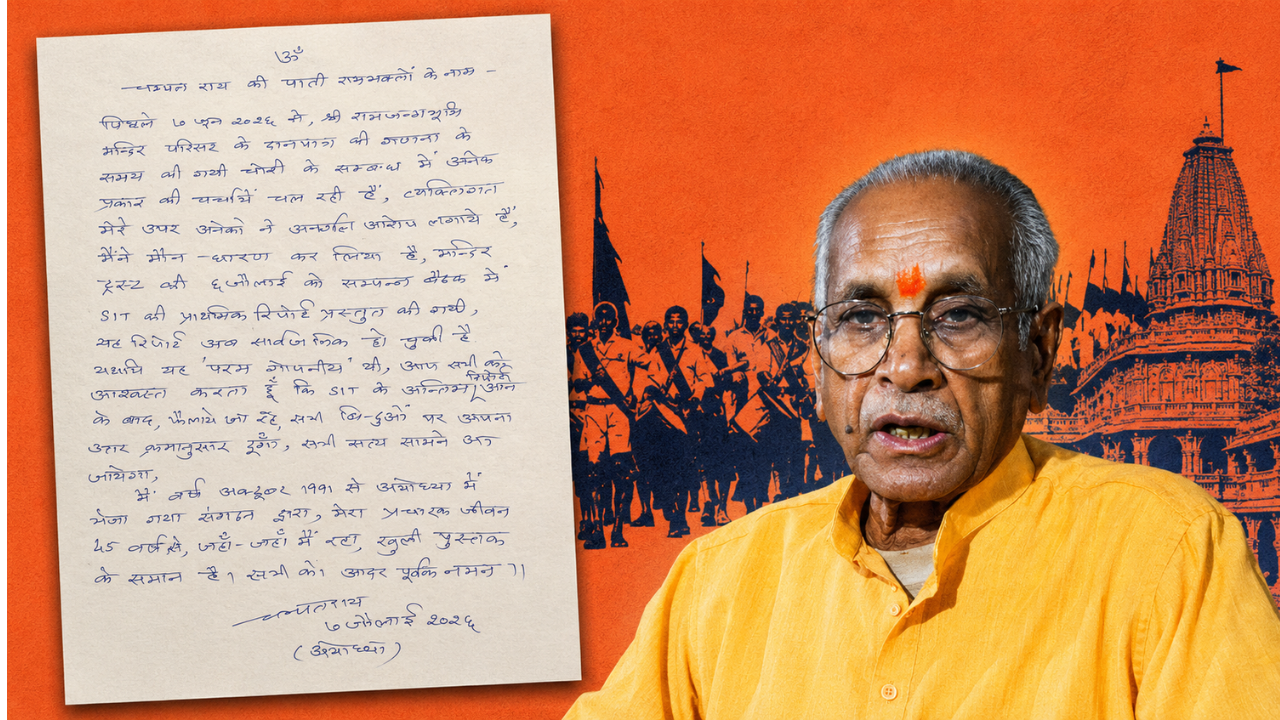 ॐ
चम्पत राय की पाती रामभक्तों के नाम -
पिछले ७ जून २०२६ से, श्री रामजन्मभूमि
मन्दिर परिसर के दानपात्र की गणना के
समय की गयी चोरी के सम्बन्ध में अनेक
प्रकार की चर्चायें चल रही हैं, व्यक्तिगत
मेरे उपर अनेकों ने अनर्गल आरोप लगाये हैं,
मैंने मौन धारण कर लिया है, मन्दिर
ट्रस्ट की ६ जौलाई को सम्पन्न बैठक में
SIT की प्राथमिक रिपोर्ट प्रस्तुत की गयी,
यह रिपोर्ट अब सार्वजनिक हो चुकी है
यद्यपि यह 'परम गोपनीय' थी, आप सभी को
आश्वस्त करता हूँ कि SIT के अन्तिम रिपोर्ट आने
के बाद, फैलाये जा रहे, सभी बिन्दुओं पर अपना
उत्तर क्रमानुसार दूँगा, सभी सत्य सामने आ
जायेगा,
मैं वर्ष अक्टूबर 1991 से अयोध्या में
भेजा गया संगठन द्वारा, मेरा प्रचारक जीवन
45 वर्ष से, जहाँ-जहाँ मैं रहा, खुली पुस्तक
के समान है। सभी को आदर पूर्वक नमन ।।
चम्पतराय
७ जौलाई २०२६
(अयोध्या)